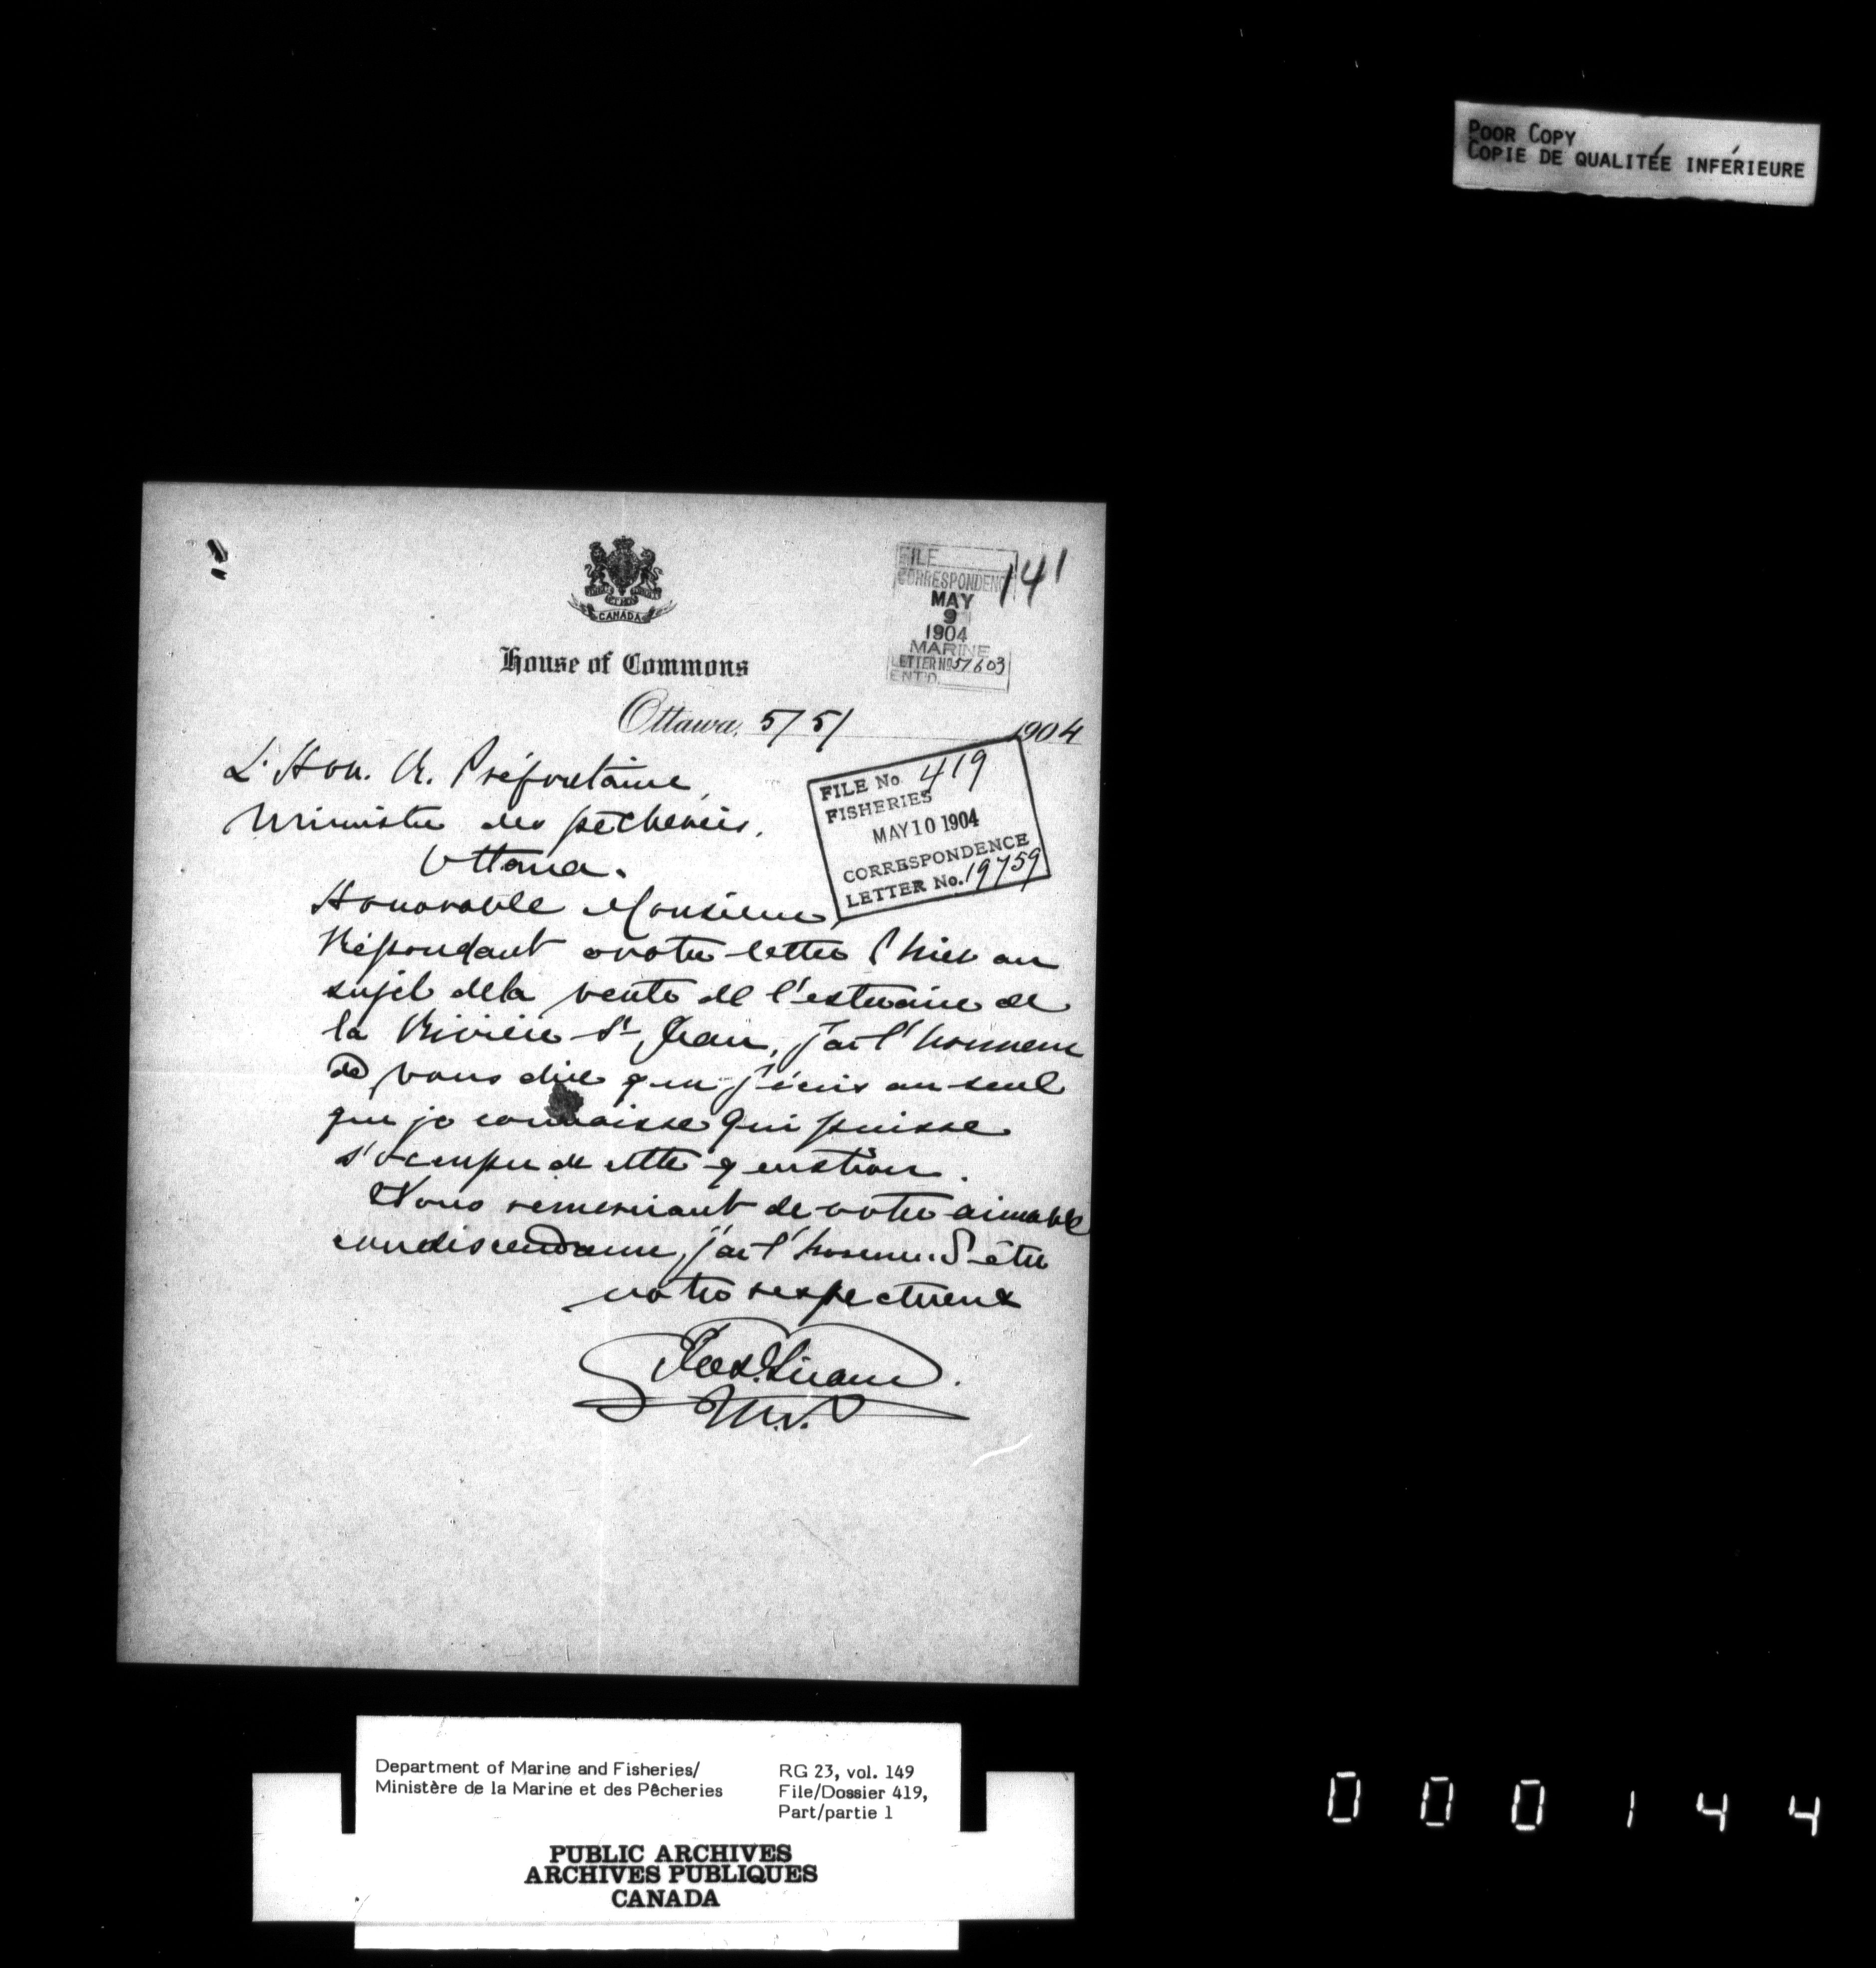 POOR COPY
COPIE DE QUALITÉE INFÉRIEURE
CANADA
House of Commons
FILE
CORRESPONDENC
141
MAY
9
1904
MARINE
LETTER No 57603
ENT'D.
Ottawa, 5/5/ 1904
L'Hon. R. Préfontaine,
Ministre des pêcheries.
Ottawa.
FILE No. 419
FISHERIES
MAY 10 1904
CORRESPONDENCE
LETTER No. 19759
Honorable Monsieur,
Répondant a votre lettre d'hier au
sujet de la vente de l'estuaire de
la Rivière St Jean, j'ai l'honneur
de vous dire que j'écris au seul
que je connaisse qui puisse
s'occuper de cette question.
Vous remerciant de votre aimable
condescendance, j'ai l'honneur d'être
votre respectueux
M.P.
Department of Marine and Fisheries/
Ministère de la Marine et des Pêcheries
RG 23, vol. 149
File/Dossier 419,
Part/partie 1
PUBLIC ARCHIVES
ARCHIVES PUBLIQUES
CANADA
000144